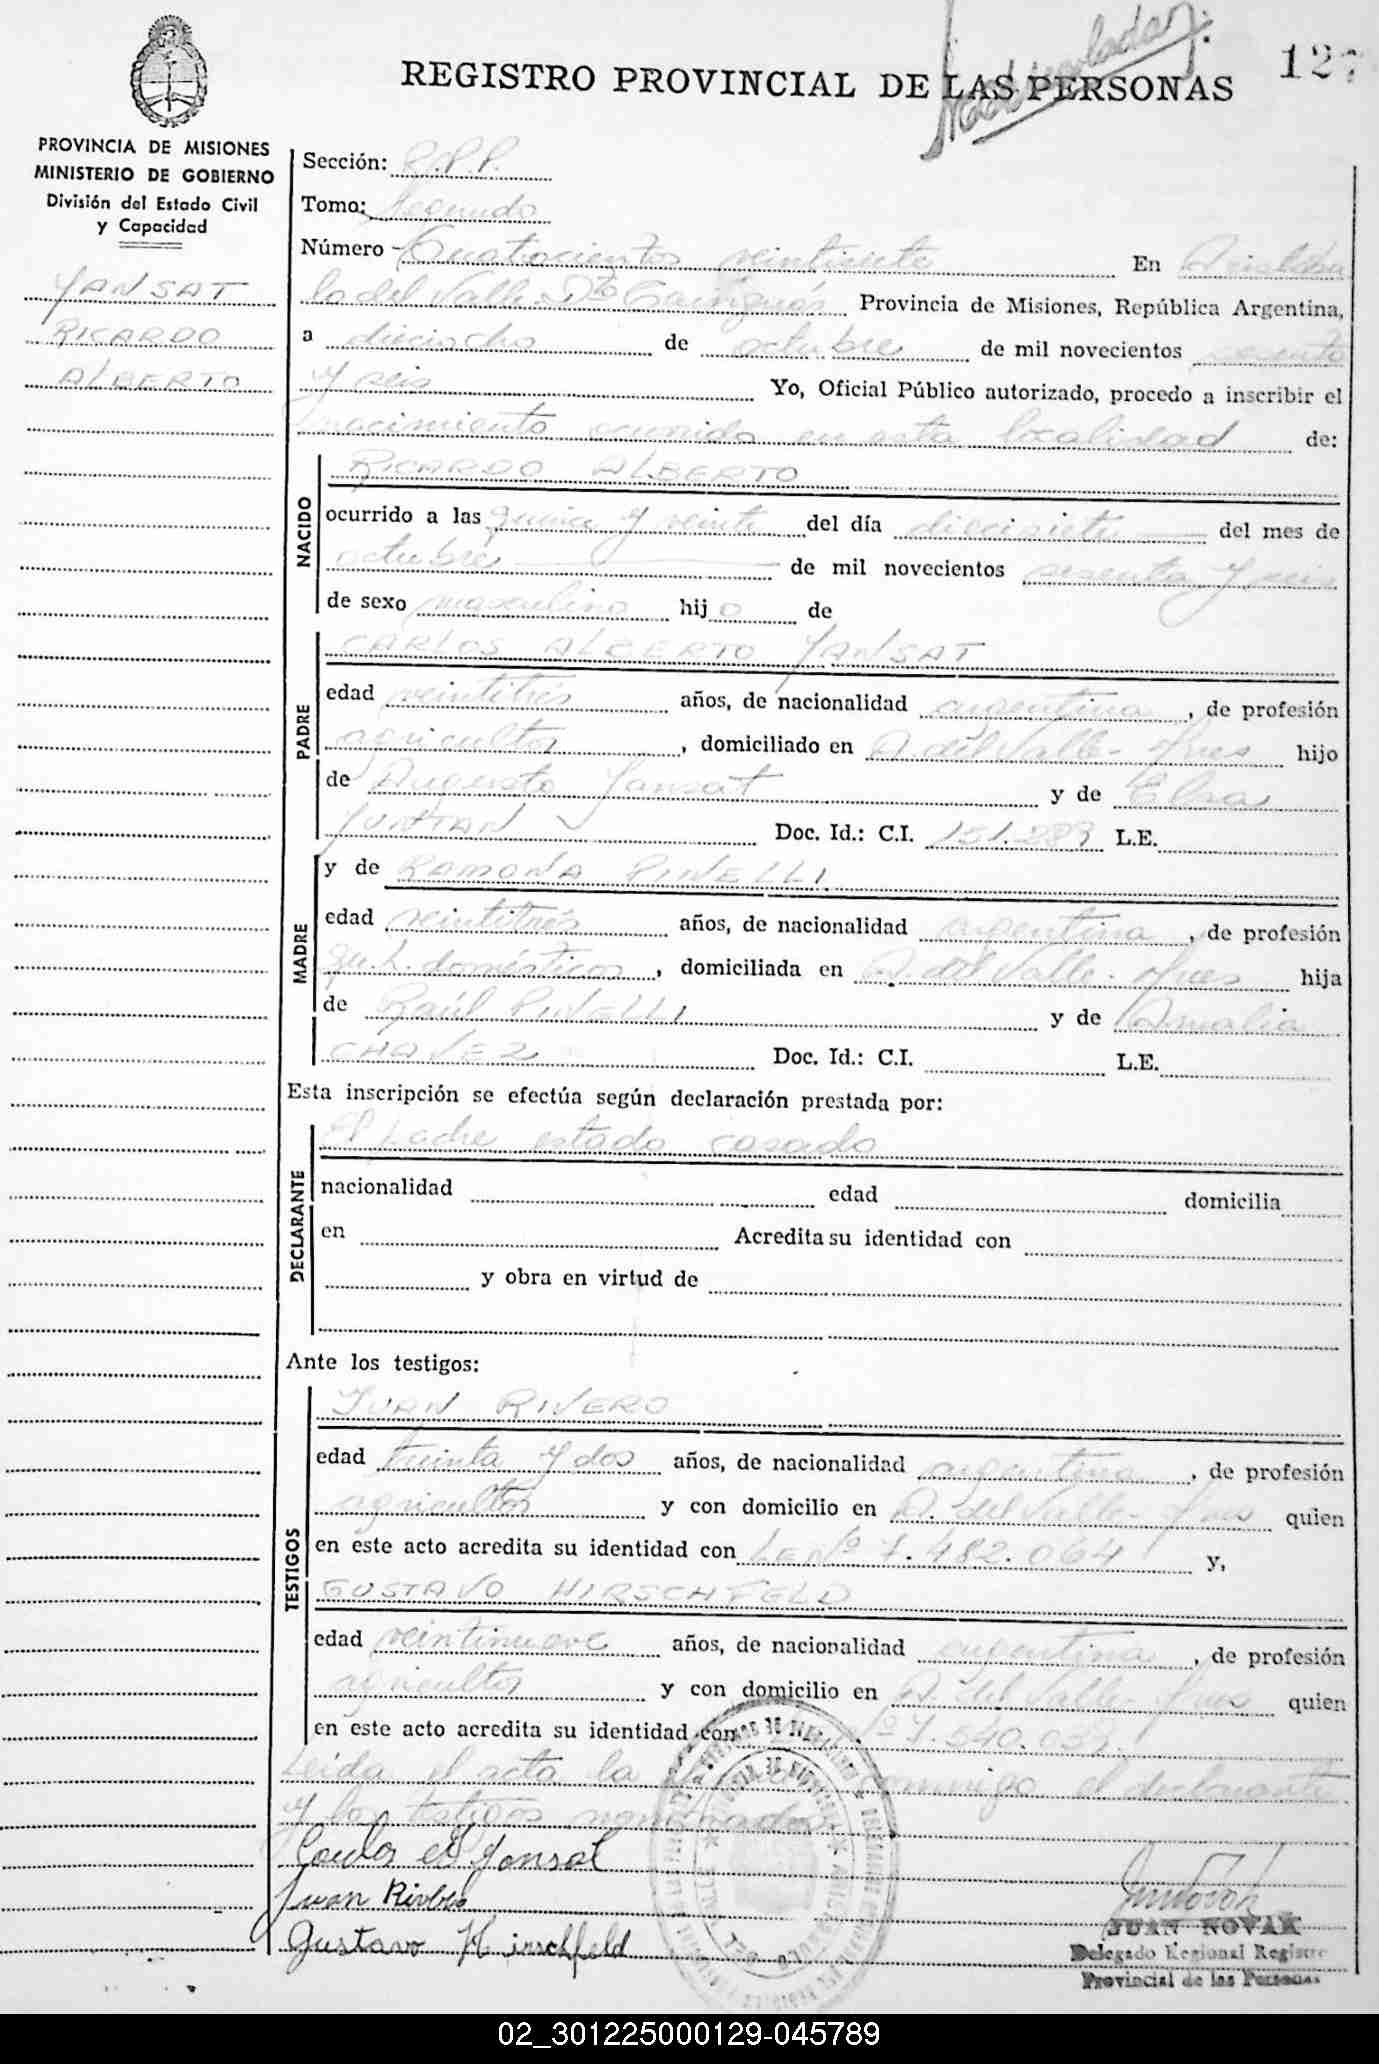 127
REGISTRO PROVINCIAL DE LAS PERSONAS
PROVINCIA DE MISIONES
MINISTERIO DE GOBIERNO
División del Estado Civil
y Capacidad
YANSAT
RICARDO
ALBERTO
Sección: R.P.P.
Tomo: Segundo
Número Cuatrocientos veintisiete En Aristóbu
lo del Valle Dto Cainguás Provincia de Misiones, República Argentina,
a dieciocho de octubre de mil novecientos sesenta
y seis Yo, Oficial Público autorizado, procedo a inscribir el
nacimiento ocurrido en esta localidad de:
NACIDO
RICARDO ALBERTO
ocurrido a las quince y veinte del día diecisiete del mes de
octubre de mil novecientos sesenta y seis
de sexo masculino hijo de
PADRE
CARLOS ALBERTO YANSAT
edad veintitrés años, de nacionalidad argentina, de profesión
agricultor, domiciliado en A. del Valle - Mnes hijo
de Augusto Yansat y de Elsa
YUNTTAN Doc. Id.: C.I. 151.289 L.E.
MADRE
y de RAMONA PINELLI
edad veintitrés años, de nacionalidad argentina, de profesión
qu. h. domésticos, domiciliada en A. del Valle - Mnes hija
de Raúl PINELLI y de Amalia
CHAVEZ Doc. Id.: C.I. L.E.
Esta inscripción se efectúa según declaración prestada por:
DECLARANTE
El padre estado casado
nacionalidad edad domicilia
en Acredita su identidad con
y obra en virtud de
Ante los testigos:
TESTIGOS
JUAN RIVERO
edad treinta y dos años, de nacionalidad argentina, de profesión
agricultor y con domicilio en A. del Valle - Mnes quien
en este acto acredita su identidad con LE Nº 7.482.064 y,
GUSTAVO HIRSCHFELD
edad veintinueve años, de nacionalidad argentina, de profesión
agricultor y con domicilio en A. del Valle - Mnes quien
en este acto acredita su identidad con Nº 7.540.039.
Leída el acta la conmigo el declarante
y los testigos nombrados
Carlos A Yansat
Juan Rivero
Gustavo Hirschfeld
JUAN NOVAK
Delegado Regional Registro
Provincial de las Personas
02_301225000129-045789